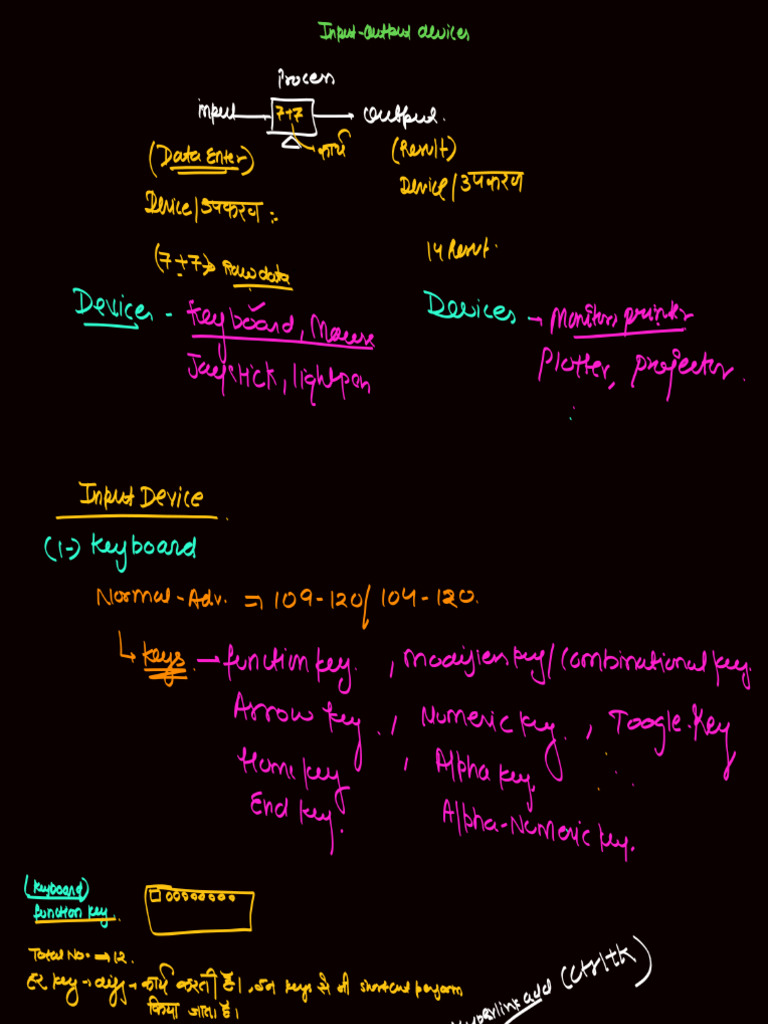 Input-output devices
Process
input 7+7 output.
कार्य
(Data Enter) (Result)
Device/उपकरण: Device/उपकरण
(7+7) Raw data 14 Result.
Devices - Keyboard, Mouse Devices → Monitors printer
Joystick, lightpen Plotter, projector.
Input Device
(1-) Keyboard
Normal-Adv. = 109-120/ 104-120.
Keys → function key. , Modifier key/Combinational key.
Arrow key. , Numeric key. , Toogle.Key
Home key , Alpha key.
End key. Alpha-Numeric key.
(Keyboard)
function key.
Total No. → 12.
हर key → diff → कार्य करती है। keys से भी shortcut perform
किया जाता है।
hyperlink add (Ctrl+K)